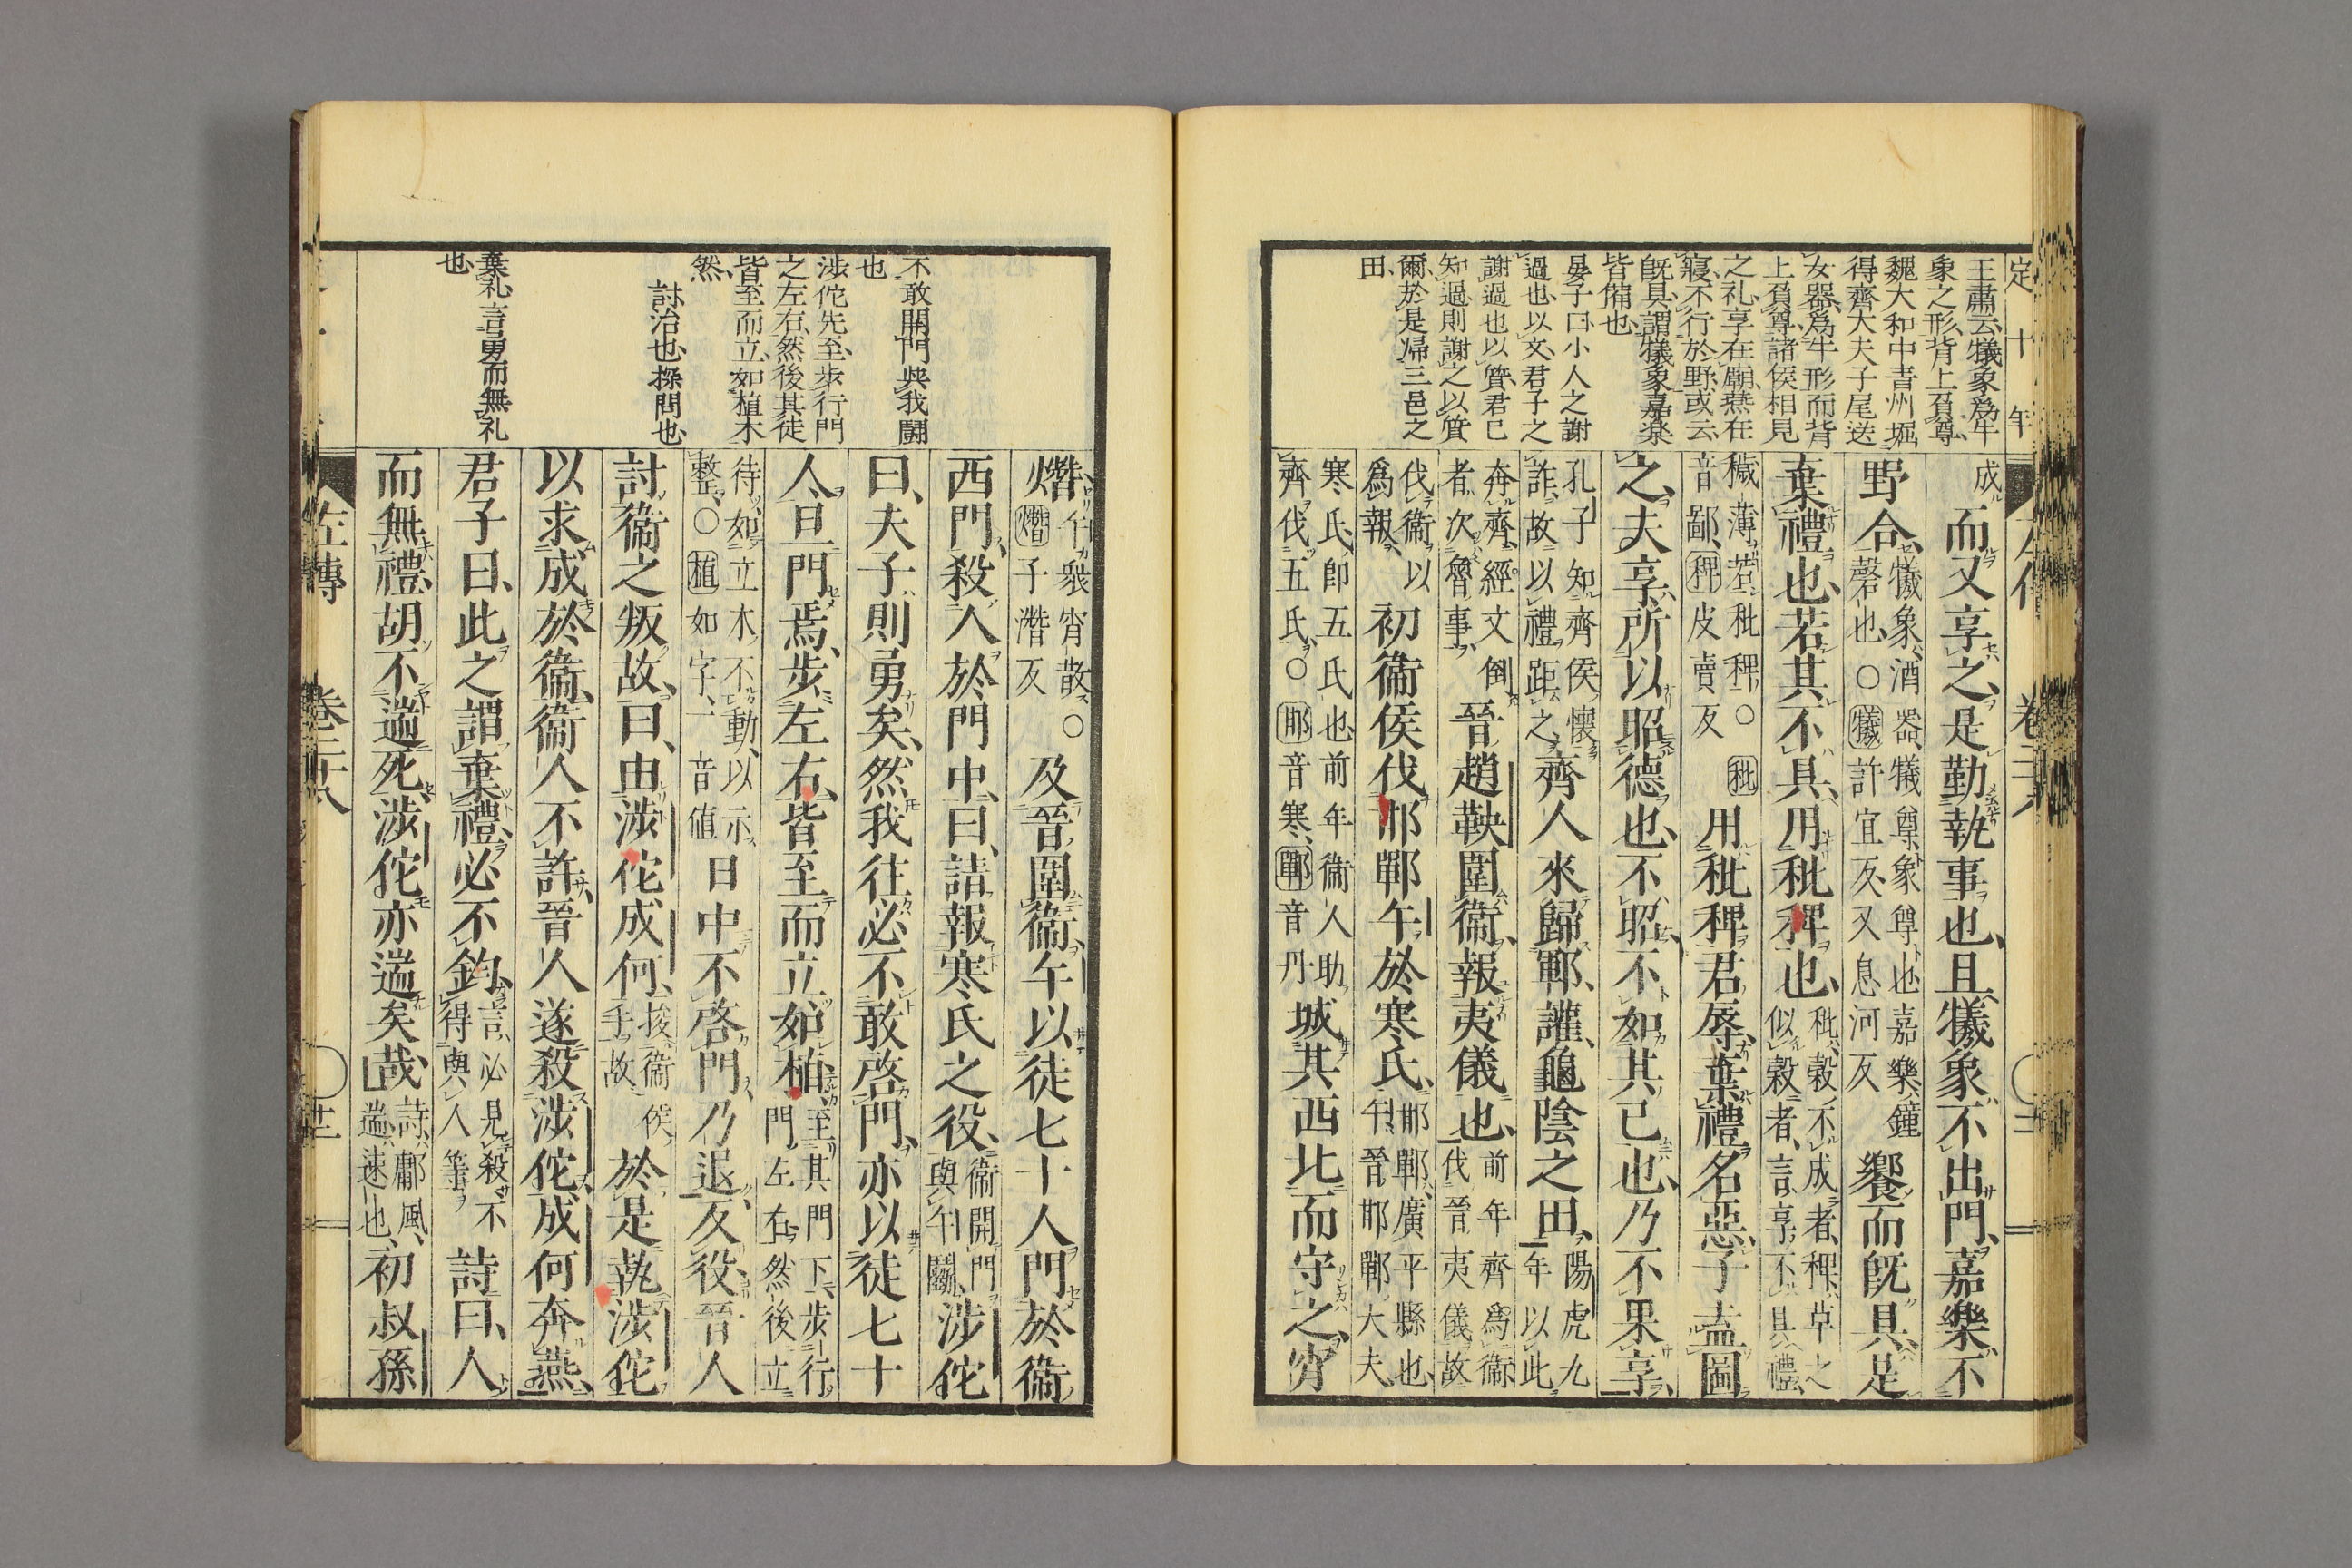 定十年
王肅云犧象爲牛
象之形背上負尊
魏大和中青州堀
得齊大夫子尾送
女器爲牛形而背
上負尊諸侯相見
之礼享在廟燕在
寢不行於野或云
既具謂犧象嘉楽
皆備也
晏子曰小人之謝
過也以文君子之
謝過也以質君已
知過則謝之以質
爾於是帰三邑之
田
成而又享之是勤執事也且犧象不出門嘉樂不
野合犧象酒器犧尊象尊也嘉樂鐘
磬也○犧許宜反又息河反饗而既具是
棄禮也若其不具用秕稗也秕穀不成者稗草之
似穀者言享不具禮
穢薄若秕稗○秕
音鄙稗皮賣反用秕稗君辱棄禮名惡子盍圖
之夫享所以昭德也不昭不如其已也乃不果享
孔子知齊侯懷
詐故以禮距之齊人來歸鄆讙龜陰之田陽虎九
年以此
奔齊經文倒
者次魯事晉趙鞅圍衞報夷儀也前年齊爲衞
伐晉夷儀故
伐衞以
爲報初衞侯伐邯鄲午於寒氏邯鄲廣平縣也
午晉邯鄲大夫
寒氏即五氏也前年衞人助
齊伐五氏○邯音寒鄲音丹城其西北而守之宵
左傳
卷二十八
不敢開門與我闘
也
涉佗先至步行門
之左右然後其徒
皆至而立如植木
然
討治也探問也
棄礼言男而無礼
也
熸午衆宵散○
熸子潛反及晉圍衞午以徒七十人門於衞
西門殺人於門中曰請報寒氏之役衞開門
與午鬭涉佗
曰夫子則勇矣然我往必不敢啓門亦以徒七十
人旦門焉步左右皆至而立如植至其門下步行
門左右然後立
待如立木不動以示
整○植如字一音値日中不啓門乃退反役晉人
討衞之叛故曰由涉佗成何捘衞侯
手故於是執涉佗
以求成於衞衞人不許晉人遂殺涉佗成何奔燕
君子曰此之謂棄禮必不鈞言必見殺不
得與人等詩曰人
而無禮胡不遄死涉佗亦遄矣哉詩鄘風
遄速也初叔孫
左傳
卷二十八
廿二